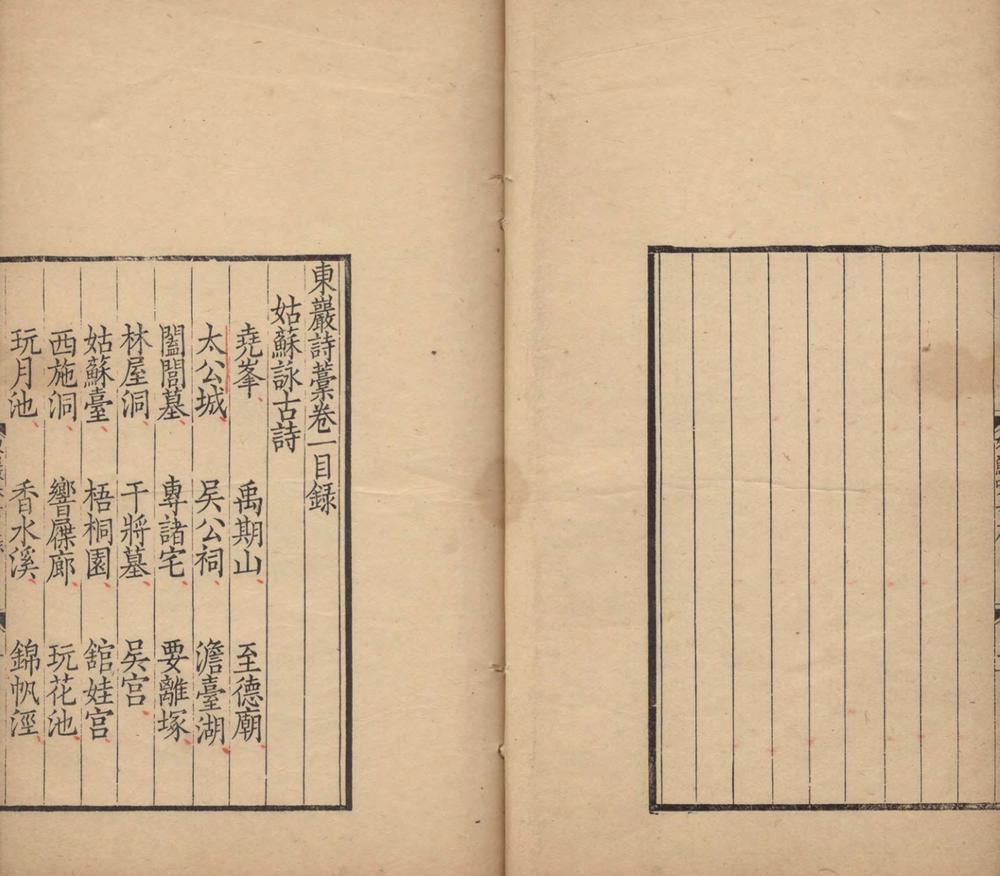 東巖詩藁卷一目録
姑蘇詠古詩
堯峯 禹期山 至德廟
太公城 吴公祠 澹臺湖
闔閭墓 專諸宅 要離塚
林屋洞 干將墓 吴宫
姑蘇臺 梧桐園 舘娃宫
西施洞 響屧廊 玩花池
玩月池 香水溪 錦帆涇